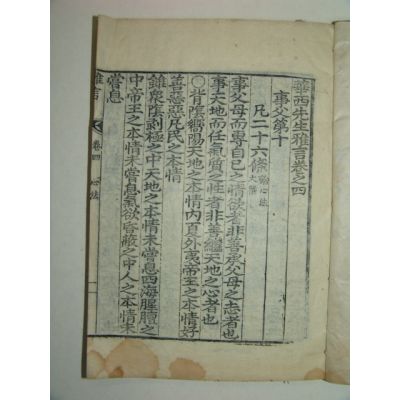 華西先生雅言卷之四
事父第十
凡二十六條 論心法大槩
事父母而專自己之情欲者非善承父母之志者也
事天地而任氣質之性者非善繼天地之心者也
○背陰嚮陽天地之本情內夏外夷帝王之本情好
善惡惡凡民之本情
雖衆陰剝極之中天地之本情未嘗息四海腥膻之
中帝王之本情未嘗息氣欲昏蔽之中人之本情未
嘗息
雅言 卷四 心法 一